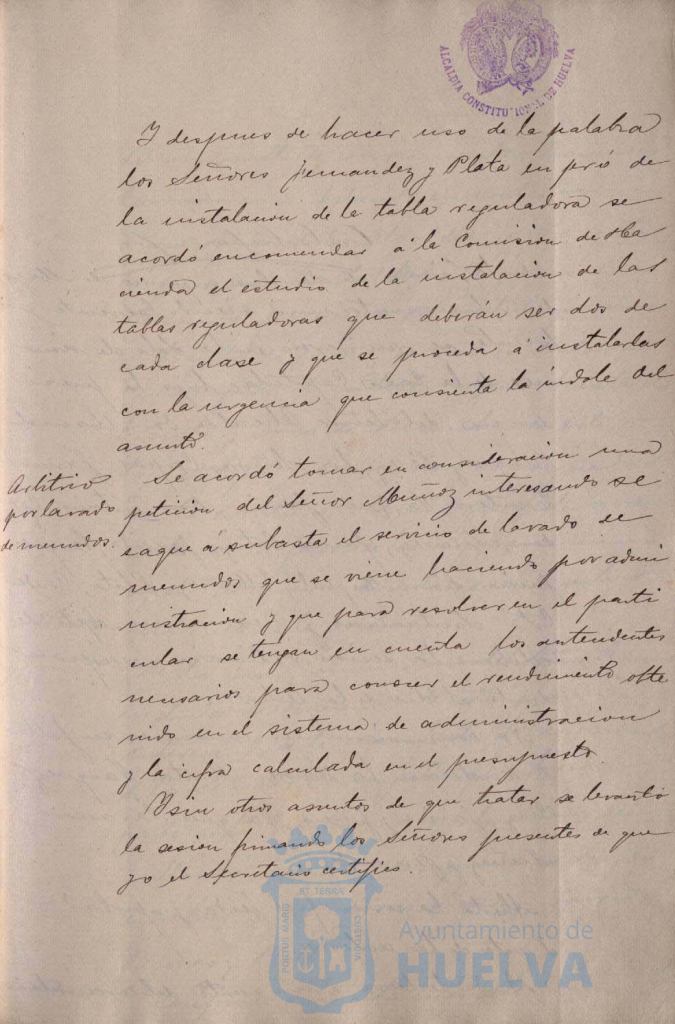 ALCALDIA CONSTITUCIONAL DE HUELVA
Y despues de hacer uso de la palabra
los Señores Fernandez y Plata en pró de
la instalacion de la tabla reguladora se
acordó encomendar á la Comision de Ha
cienda el estudio de la instalacion de las
tablas reguladoras que deberán ser dos de
cada clase y que se proceda á instalarlas
con la urgencia que consienta la índole del
asunto.
Arbitrio
por lavado
de menudos.
Se acordó tomar en consideracion una
peticion del Señor Muñoz interesando se
saque á subasta el servicio de lavado de
menudos que se viene haciendo por admi
nistracion y que para resolver en el parti
cular se tengan en cuenta los antecedentes
necesarios para conocer el rendimiento obte
nido en el sistema de administracion
y la cifra calculada en el presupuesto.
Y sin otros asuntos de que tratar se levantó
la sesion firmando los Señores presentes de que
yo el Secretario certifico.
PORTUS MARIS
ET TERRA
CUSTODIA
Ayuntamiento de
HUELVA